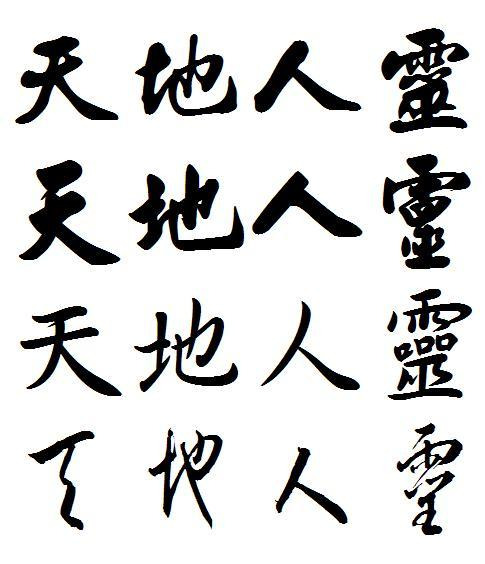 天地人靈
天地人靈
天地人靈
天地人靈